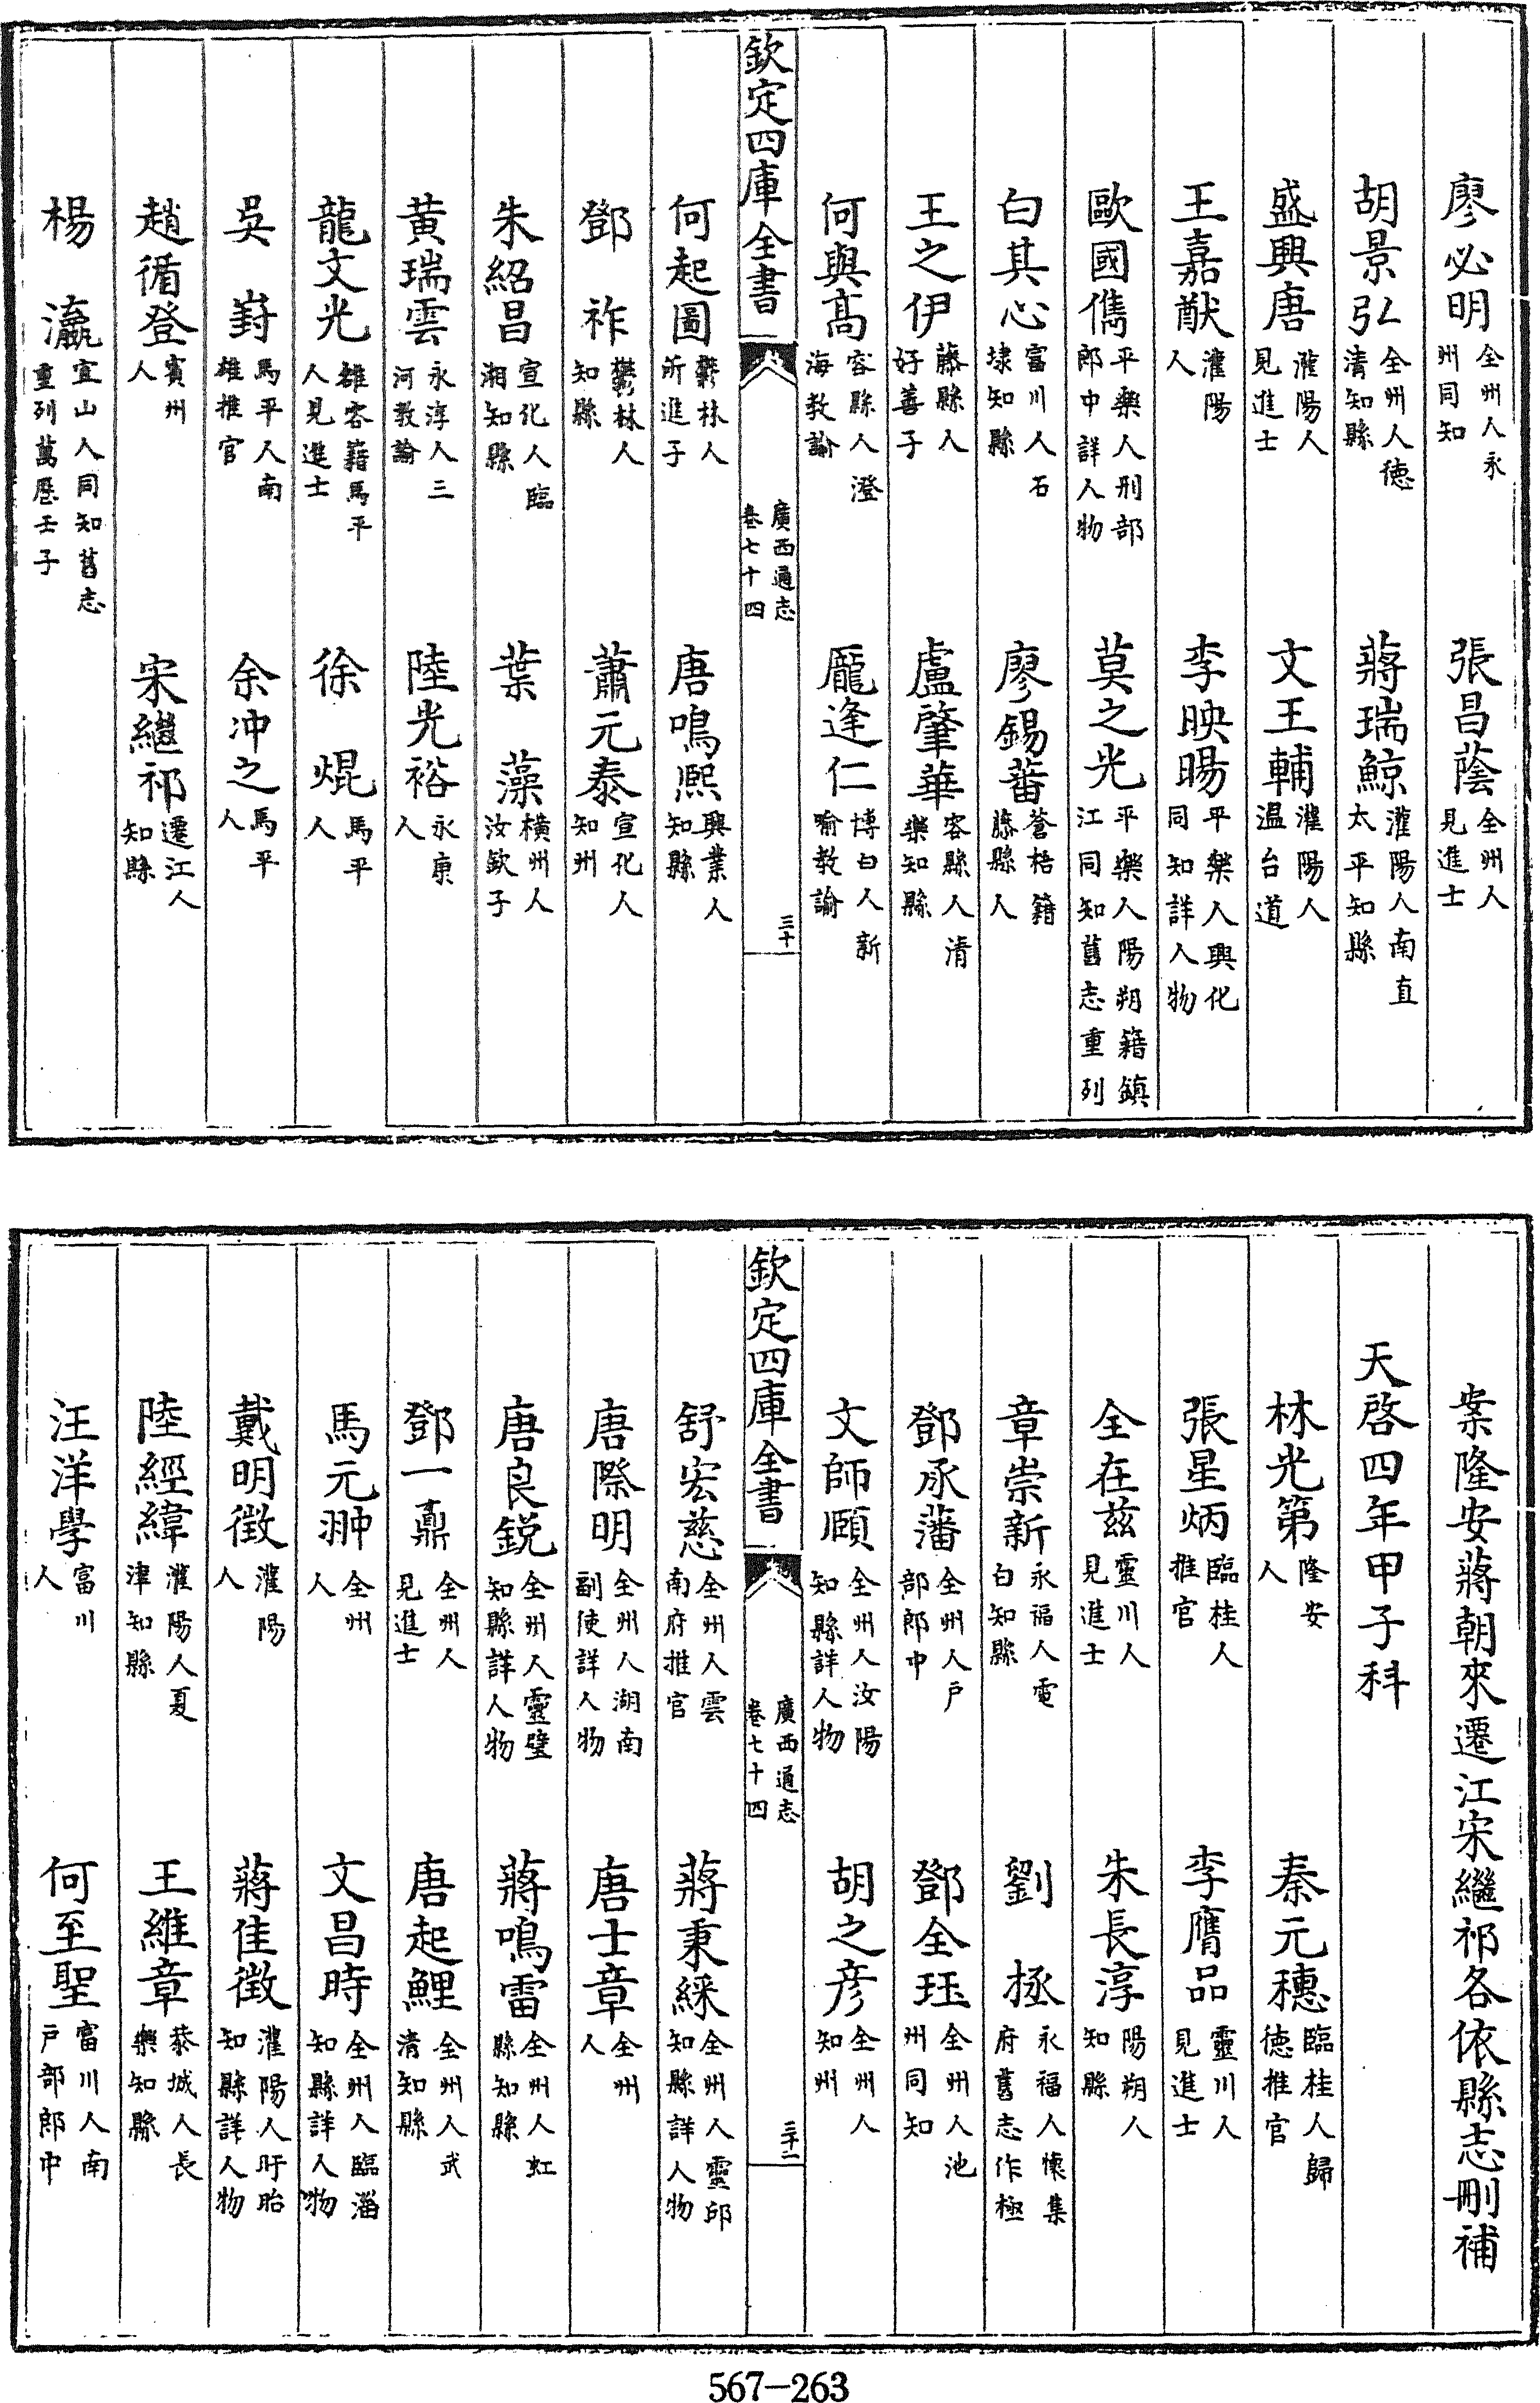 廖必明全州人永州同知　張昌蔭全州人見進士
胡景弘全州人德清知縣　蔣瑞鯨灌陽人南直太平知縣
盛興唐灌陽人見進士　文王輔灌陽人温台道
王嘉猷灌陽人　李映暘平樂人興化同知詳人物
歐國儁平樂人刑部郎中詳人物　莫之光平樂人陽朔籍鎮江同知舊志重列
白其心富川人石埭知縣　廖錫蕃蒼梧籍籐縣人
王之伊藤縣人好善子　盧肇華容縣人清樂知縣
何與高容縣人澄海教諭　龎逢仁博白人新喻教諭
欽定四庫全書　廣西通志卷七十四　三十
何起圖鬱林人所進子　唐鳴熙興業人知縣
鄧祚鬱林人知縣　蕭元泰宣化人知州
朱紹昌宣化人臨湘知縣　葉藻橫州人汝欽子
黄瑞雲永淳人三河教諭　陸光裕永康人
龍文光雒容籍馬平人見進士　徐焜馬平人
吳崶馬平人南雄推官　余冲之馬平人
趙循登賓州人　宋繼祁遷江人知縣
楊瀛宜山人同知舊志重列萬厯壬子
案隆安蔣朝來遷江宋繼祁各依縣志刪補
天啓四年甲子科
林光第隆安人　秦元穗臨桂人歸德推官
張星炳臨桂人推官　李膺品靈川人見進士
全在兹靈川人見進士　朱長淳陽朔人知縣
章崇新永福人電白知縣　劉拯永福人懷集府舊志作極
鄧承藩全州人戶部郎中　鄧全珏全州人池州同知
文師頤全州人汝陽知縣詳人物　胡之彦全州人知州
欽定四庫全書　廣西通志卷七十四　三十一
舒宏慈全州人雲南府推官　蔣秉綵全州人靈邱知縣詳人物
唐際明全州人湖南副使詳人物　唐士章全州人
唐良鋭全州人靈璧知縣詳人物　蔣鳴雷全州人虹縣知縣
鄧一鼒全州人見進士　唐起鯉全州人武清知縣
馬元翀全州人　文昌時全州人臨淄知縣詳人物
戴明徵灌陽人　蔣佳徵灌陽人盱眙知縣詳人物
陸經緯灌陽人夏津知縣　王維章恭城人長樂知縣
汪洋學富川人　何至聖富川人南戶部郎中
567-263